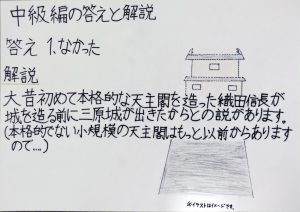 中級編の答えと解説
答え 1、なかった
解説
大昔初めて本格的な天主閣を造った織田信長が
城を造る前に三原城が出きたからとの説があります。
(本格的でない小規模の天主閣はもっと以前からあります
ので…)
※イラストはイメージです。